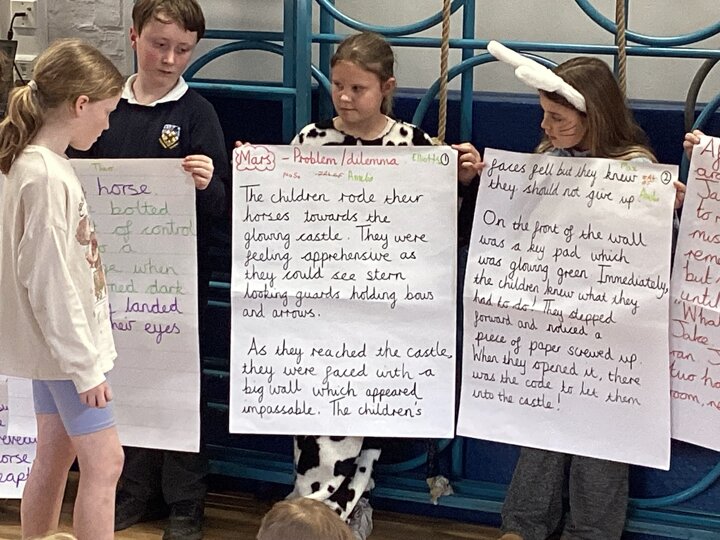 Two
horse.
bolted
of control
a
when
dark
landed
their eyes
horse
Mars - Problem/dilemma Elliotts 1
Rose Amelia
The children rode their
horses towards the
glowing castle. They were
feeling apprehensive as
they could see stern
looking guards holding bows
and arrows.
As they reached the castle,
they were faced with a
big wall which appeared
impassable. The children's
faces fell but they knew 2
they should not give up
On the front of the wall
was a key pad which
was glowing green. Immediately,
the children knew what they
had to do! They stepped
forward and noticed a
piece of paper screwed up.
When they opened it, there
was the code to let them
into the castle!
Ja
to r
mus
reme
but
until
What
Jake
ran J
two ho
room, n